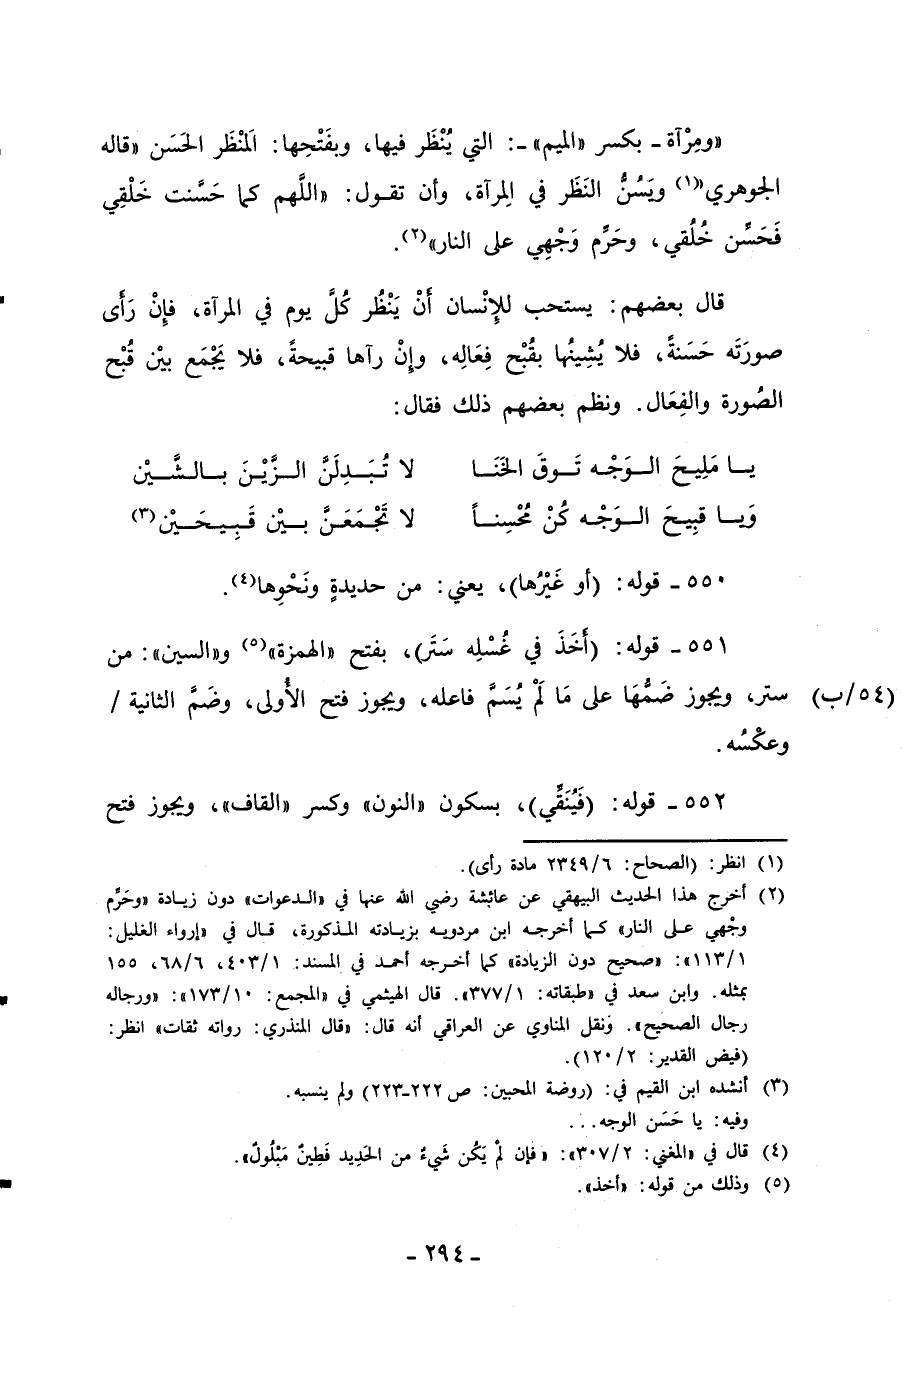 «ومِرْآة ـ بكسر «الميم» ـ: التي يُنْظَر فيها، وبفَتْحِها: المَنْظَر الحَسَن «قاله
الجوهري»(١) ويَسُنُّ النَظَر في المِرآة، وأن تقـول: «اللَّهم كما حَسَّنت خَلْقِي
فَحَسِّن خُلُقي، وحَرِّم وَجْهِي على النار»(٢).
قال بعضهم: يستحب للإِنْسان أَنْ يَنْظُر كُلَّ يوم في المرآة، فإِنْ رَأَى
صورَتَه حَسَنةً، فلا يُشِينُها بقُبْح فِعَالِه، وإِنْ رآها قبيحةً، فلا يَجْمَع بيْن قُبْح
الصُورة والفِعَال. ونظم بعضهم ذلك فقال:
يـا مَلِيـحَ الـوَجْـه تَـوقَ الخَنَـا لا تُـبَـدِلَنَّ الـزَّيْـنَ بـالـشَّـيْن
وَيـا قبِيـحَ الـوَجْـه كُنْ مُحْسِنـاً لا تَجْمَعَـنَّ بـيْن قَـبِـيـحَـيْن(٣)
٥٥٠ ـ قوله: (أو غَيْرُها)، يعني: من حديدةٍ ونَحْوِها(٤).
٥٥١ ـ قوله: (أَخَذَ في غُسْلِه سَتَر)، بفتح «الهمزة»(٥) و«السين»: من
(٥٤/ب) ستر، ويجوز ضَمُّهَا على مَا لَمْ يُسَمَّ فاعله، ويجوز فتح الأُولى، وضَمَّ الثانية /
وعكْسُه.
٥٥٢ ـ قوله: (فَيُنَقِّي)، بسكون «النون» وكسر «القاف»، ويجوز فتح
(١) انظر: (الصحاح: ٢٣٤٩/٦ مادة رأى).
(٢) أخرج هذا الحديث البيهقي عن عائشة رضي الله عنها في «الـدعوات» دون زيـادة «وحَرِّم
وجْهي عـلى النار» كـما أخرجـه ابن مردويـه بزيـادته المـذكورة، قـال في «إرواء الغليل:
١١٣/١»: «صحيح دون الزيادة» كما أخـرجه أحمـد في المسند: ٤٠٣/١، ٦٨/٦، ١٥٥
بمثله. وابن سعد في «طبقاته: ٣٧٧/١». قال الهيثمي في «المجمع: ١٧٣/١٠»: «ورجاله
رجال الصحيح». ونقل المناوي عن العراقي أنه قال: «قال المنذري: رواته ثقات» انظر:
(فيض القدير: ١٢٠/٢).
(٣) أنشده ابن القيم في: (روضة المحبين: ص٢٢٢ـ٢٢٣) ولم ينسبه.
وفيه: يا حَسَن الوجه...
(٤) قال في «المغني: ٣٠٧/٢»: «فإن لمْ يَكُن شَيءٌ من الحَديد فَطِينٌ مَبْلُولٌ».
(٥) وذلك من قوله: «أخذ».
ـ ٢٩٤ ـ